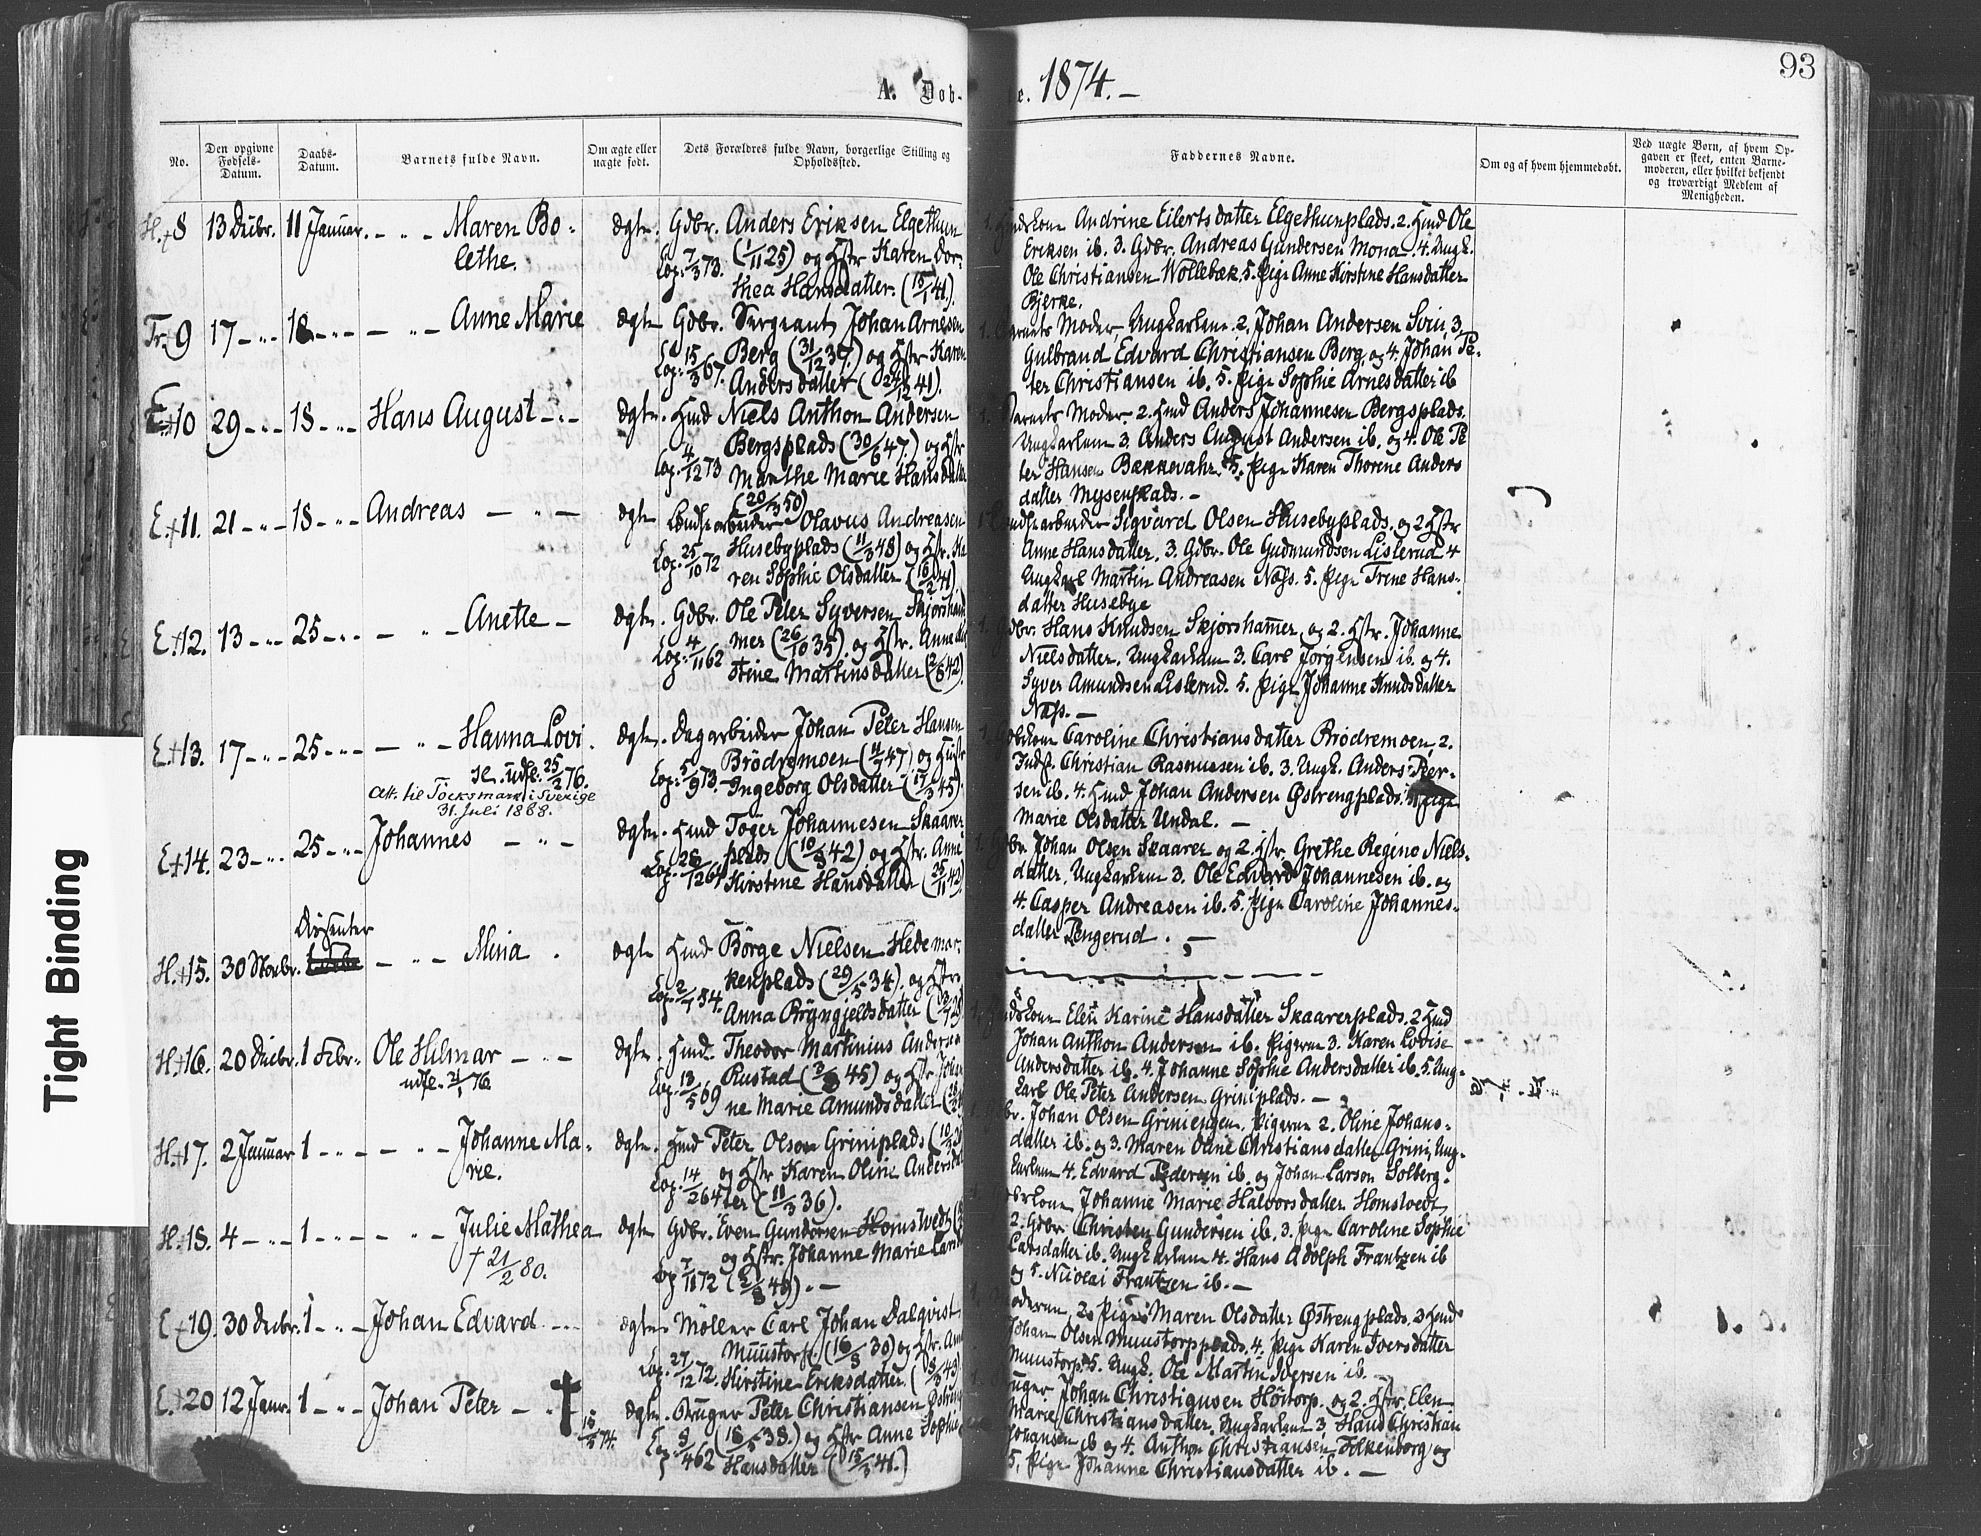 93
A. Døb-
e. 1874.-
No.
Den opgivne Fødsels-Datum.
Daabs-Datum.
Barnets fulde Navn.
Om ægte eller uægte født.
Dets Forældres fulde Navn, borgerlige Stilling og Opholdssted.
Faddernes Navne.
Om og af hvem hjemmedøbt.
Ved uægte Børn, af hvem Op-
gaven er skeet, enten Barne-
moderen, eller hvilket bekjendt
og troværdigt Medlem af
Menigheden.
H. 8 13 Decbr. 11 Januar. Maren Bo-
lethe.
ægte. Gdbr. Anders Eriksen Elgethun
Cop. 7/3 73. (1/11 25) og Hstr Karen Dor-
thea Hansdatter. (15/1 41).
Andrine Eilertsdatter Elgethunplads. 2. Husmd Ole
Eriksen ib. 3. Gdbr. Andreas Gundersen Mona. 4. Ungk.
Ole Christiansen Wollebæk. 5. Pige Anne Kirstine Hansdatter
Bjerke.
Tr. 9 17 18 Anne Marie
ægte Gdbr. Sergeant Johan Arnesen
Cop. 15/3 67. Berg (31/12 37.) og Hstr Karen
Andersdatter (24/12 41).
1. Barnets Moder, Ungkarlene 2. Johan Andersen Svin, 3.
Gulbrand Edvard Christiansen Berg, og 4. Johan Pe-
ter Christiansen ib. 5. Pige Sophie Arnesdatter ib
E. 10 29 18 Hans August
ægte. Husmd Niels Anthon Andersen
Bergsplads (30/6 47.) og Hstr
Cop. 4/12 73 Marthe Marie Hansdatter
(20/3 50)
1. Barnets Moder. 2. Husmd Anders Johannesen Bergsplads.
Ungkarlene 3. Anders August Andersen ib. og 4. Ole Pe
ter Hansen Bækkevahr. 5. Pige Karen Thorene Anders
datter Mysenplads.-
E. 11. 21 18 Andreas
ægte Olavus Andreasen
Husebyplads (11/3 48) og Hstr. Ka
Cop. 25/10 72 ren Sophie Olsdatter (16/2 41)
Sigvard Olsen Husebyplads. og 2 Hstr
Anne Hansdatter. 3. Gdbr. Ole Gudmundsen Lislerud 4
Ungkarl Martin Andreasen Næss. 5. Pige Trene Hans-
datter Husebye
E. 12. 13 25 Anette
ægte. Gdbr. Ole Peter Syversen Skjørsham
Cop. 4/11 62 mer (26/10 35). og Hstr.
stine Martinsdatter (2/8 42).
1. Gdbr. Hans Knudsen Skjørshamer og 2. Hstr. Johanne
Nielsdatter. Ungkarlene 3. Carl Jørgensen ib. og 4.
Syver Amundsen Lislerud. 5. Pige Johanne Knudsdatter
Næss.-
E. 13. 17 25 Hanna Lovi.
se. udfl. 25/2 76.
Att. til Töcksmark i Sverige
31. Juli 1888.
ægte. Dagarbeider Johan Peter Hansen
Brödremoen (4/7 47) og Hustr
Cop. 5/9 73. Ingeborg Olsdatter (17/3 45)
Caroline Christiansdatter Brödremoen, 2.
Inds. Christian Rasmussen ib. 3. Ungk. Anders Peer-
sen ib. 4. Husmd Johan Andersen Østrengplads. Pige
Marie Olsdatter Undal.-
E. 14. 23 25 Johannes
ægte. Husmd Toger Johannesen Skaarer
plads (10/3 42) og Hstr. Anne
Kirstine Hansdatter (25/11 42)
1. Gdbr Johan Olsen Skaarer og 2. Hstr. Grethe Regine Niels-
datter. Ungkarlene 3. Ole Edvard Johannesen ib. og
4. Casper Andreasen ib. 5. Pige Caroline Johannes-
datter Pengerud.
Dissenter
H. 15. 30 Novbr. Mina
ægte Husmd Börge Nielsen Hedemar-
kenplads (29/5 34) og Hstr.
Anna Bryngjeldsdatter
H. 16. 20 Decbr. 1 Febr. Ole Hilmar
udfl. 76.
ægte. Husmd Theodor Martinius Andersen
Rustad (45) og Hstr Johan
Cop. 13/5 69 ne Marie Amundsdatter
Elen Karine Hansdatter Skaarerplads. 2 Husmd
Johan Anthon Andersen ib. Pigerne 3. Karen Lovise
Andersdatter ib. 4. Johanne Sophie Andersdatter ib. 5. Ung-
karl Ole Peter Andersen Griniplads.-
H. 17. 2 Januar 1 Johanne Ma-
rie.
ægte. Husmd Peter Olsen Griniplads
Cop. 14/2 64 og Hstr Karen Oline Andersdat
ter (11/3 36).
Johan Olsen Griniengen. Pigerne 2. Oline Johans-
datter ib. og 3. Maren Oline Christiansdatter Grini, Ung-
karlene 4. Edvard Pedersen ib. og Johan Larson Solberg.
H. 18. 4 1 Julie Mathea
† 21/2 80.
ægte Gdbr. Even Gundersen Homstvedt
og Hstr. Johanne Marie Lars
Cop. 7/11 72
Johanne Marie Halvorsdatter Homstvedt
2. Gdbr. Christen Gundersen ib. 3. Pige Caroline Sophie
Larsdatter ib. Ungkarlene 4. Hans Adolph Frantzen ib
og 5. Nicolai Frantzen ib.-
E. 19. 30 Decbr. 1 Johan Edvard
ægte. Møller Carl Johan Dalqvist
Muustorp. (16/8 30) og Hstr. Ann
Cop. 27/12 72. Kirstine Eriksdatter.
Moderen, 2. Pige Maren Olsdatter Østrengplads. 3 Husmd
Johan Olsen Muustorpplads. 4. Pige Karen Iversdatter
Muustorp. 5. Ungk. Ole Martin Iversen ib.
E. 20 12 Janr. 1 Johan Peter †
ægte. Bruger Peter Christiansen
(18/5 38) og Hstr Anne Sophie
Hansdatter (15/3 41.)
Bruger Johan Christiansen Høitorp. og 2. Hstr. Elen
Marie Christiansdatter. Ungkarlene 3, Hans Christian
Johansen ib og 4. Anthon Christiansen Folkenborg og
5. Pige Johanne Christiansdatter ib.-
Tight Binding